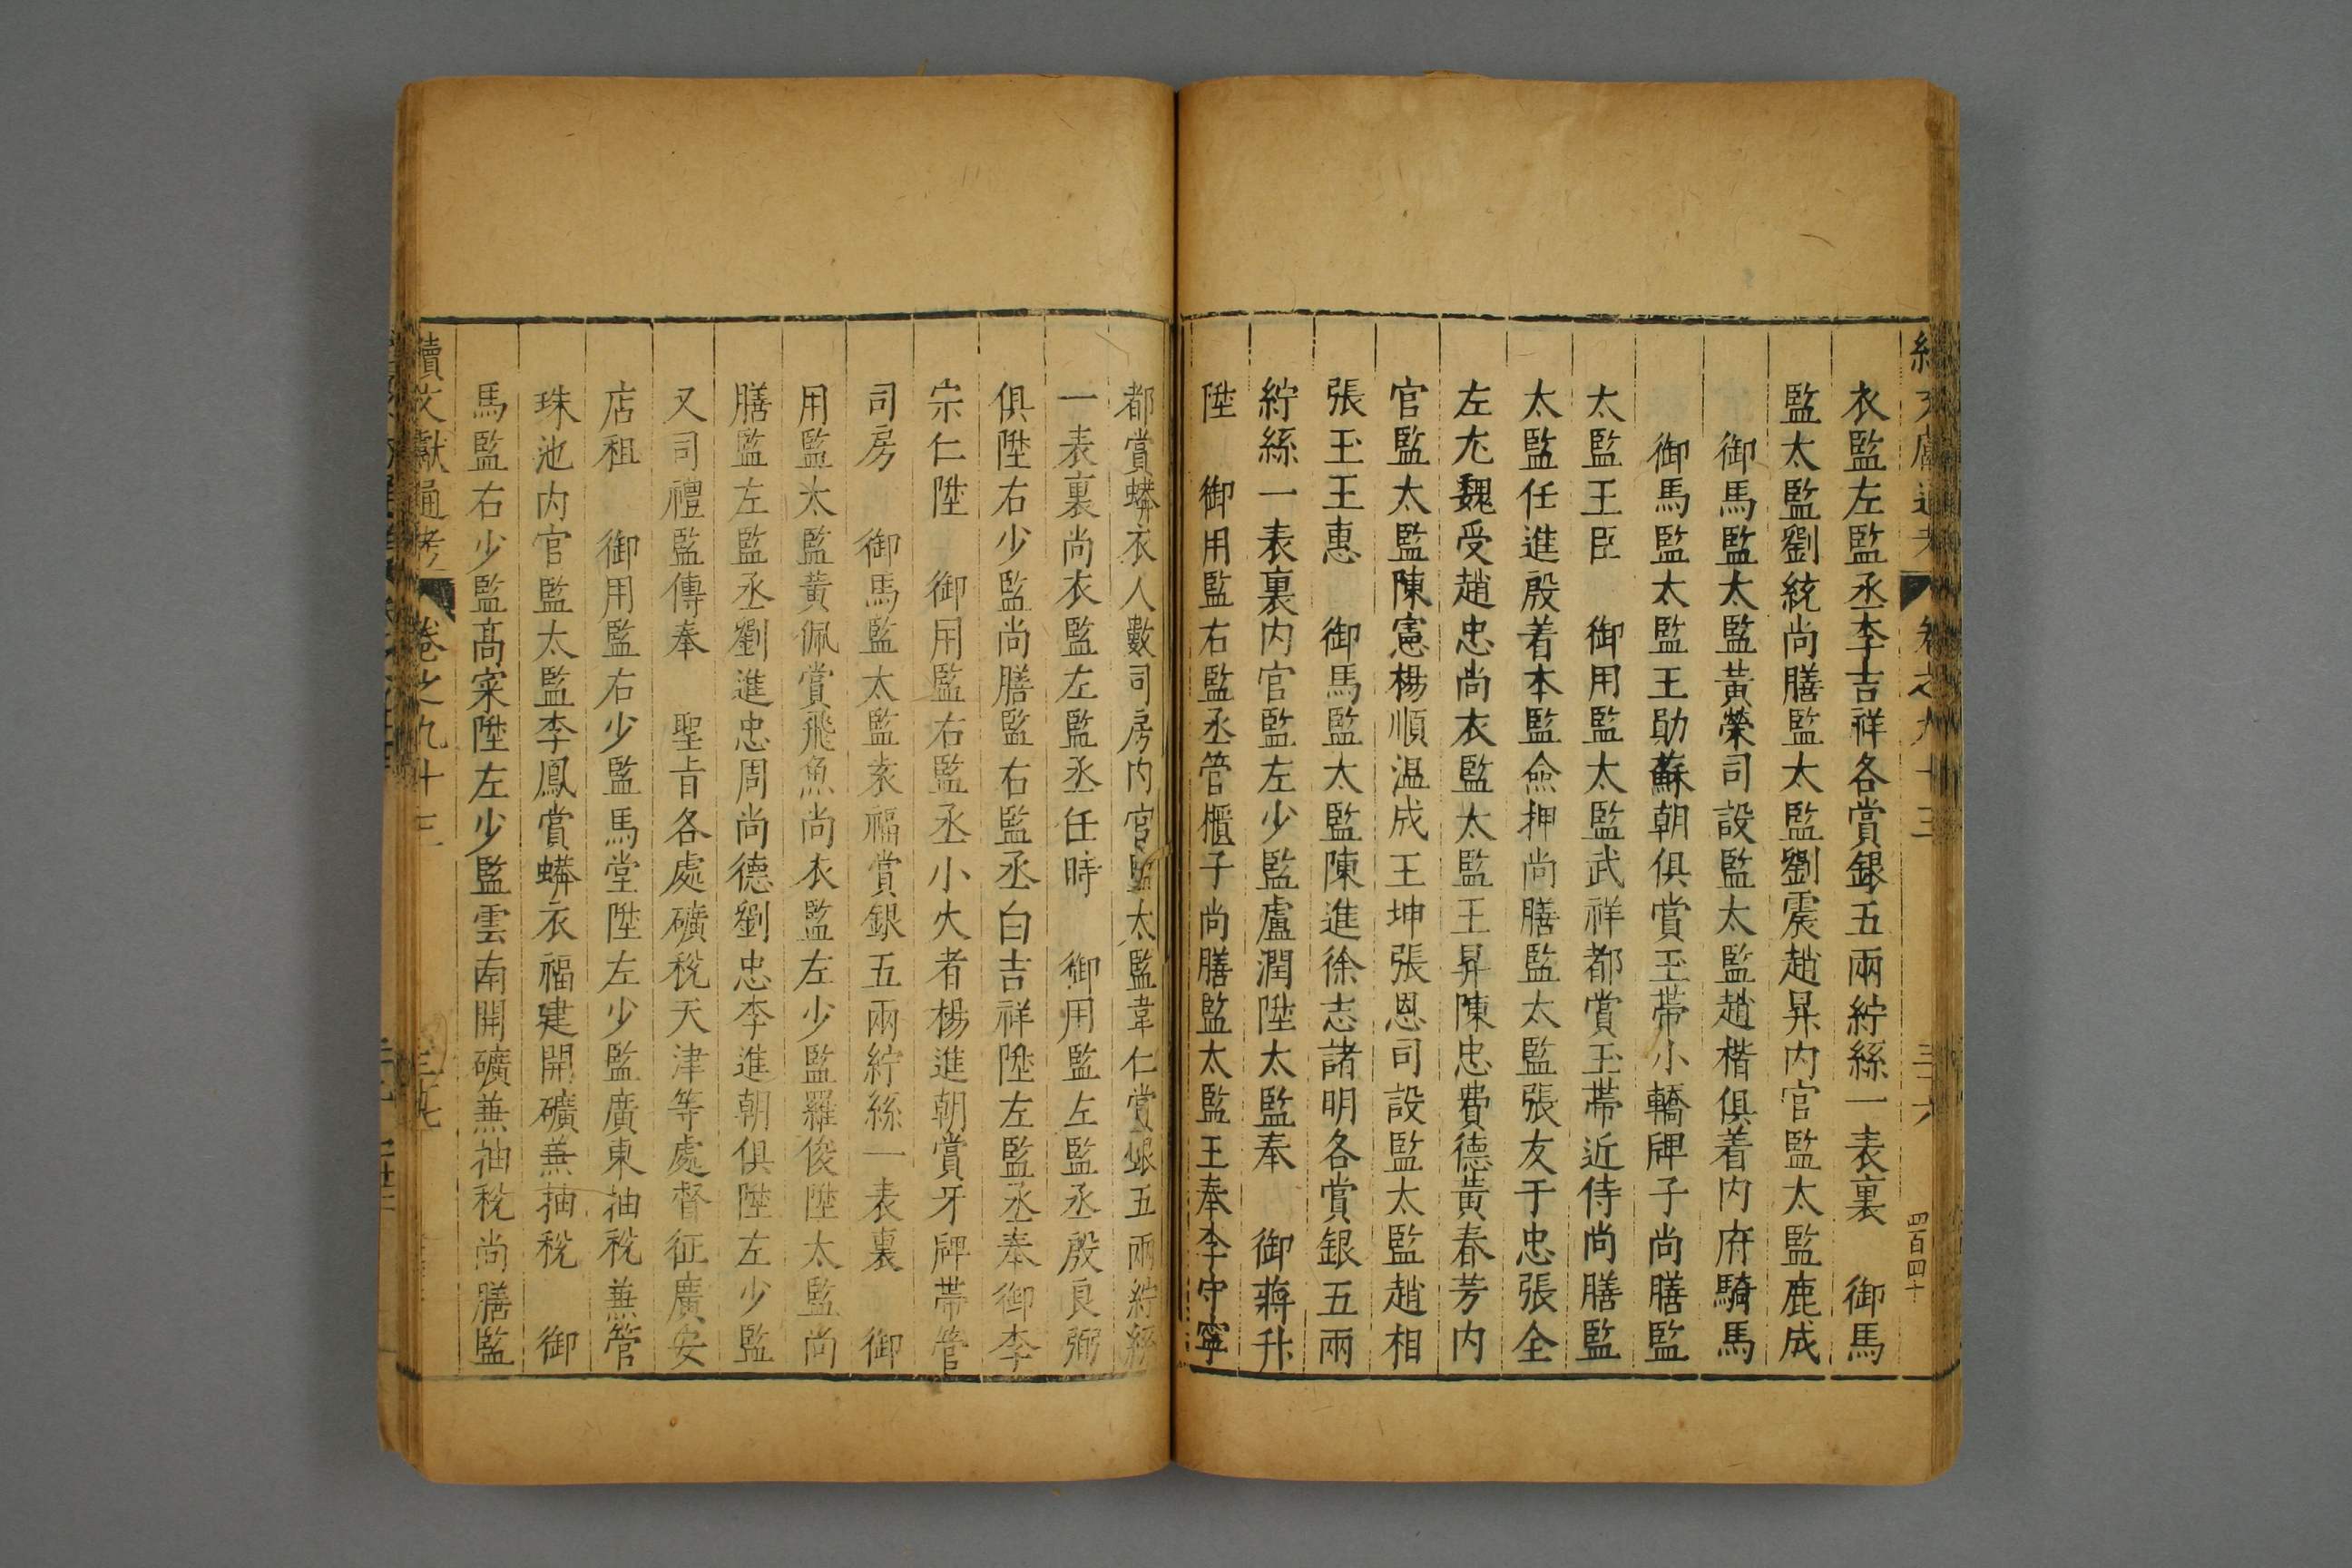 衣監左監丞李吉祥各賞銀五兩紵絲一表裏　御馬
監太監劉統尚膳監太監劉震趙昇内官監太監鹿成
御馬監太監黃榮司設監太監趙楷俱着内府騎馬
御馬監太監王勛蘇朝俱賞玉帶小轎牌子尚膳監
太監王臣　御用監太監武祥都賞玉帶近侍尚膳監
太監任進殷着本監僉押尚膳監太監張友于忠張全
左尤魏受趙忠尚衣監太監王昇陳忠費德黃春芳内
官監太監陳憲楊順温成王坤張恩司設監太監趙相
張玉王惠　御馬監太監陳進徐志諸明各賞銀五兩
紵絲一表裏内官監左少監盧潤陞太監奉　御蔣升
陞　御用監右監丞管櫃子尚膳監太監王奉李守寧
都賞蟒衣人數司房内官監太監韋仁賞銀五兩紵絲
一表裏尚衣監左監丞任時　御用監左監丞殷良弼
俱陞右少監尚膳監右監丞白吉祥陞左監丞奉御李
宗仁陞　御用監右監丞小火者楊進朝賞牙牌帶管
司房　御馬監太監袁福賞銀五兩紵絲一表裏　御
用監太監黃佩賞飛魚尚衣監左少監羅俊陞太監尚
膳監左監丞劉進忠周尚德劉忠李進朝俱陞左少監
又司禮監傳奉　聖旨各處礦稅天津等處督征廣安
店租　御用監右少監馬堂陞左少監廣東抽稅兼管
珠池内官監太監李鳳賞蟒衣福建開礦兼抽稅　御
馬監右少監高寀陞左少監雲南開礦兼抽稅尚膳監
續文獻通考　卷之九十三　三十七